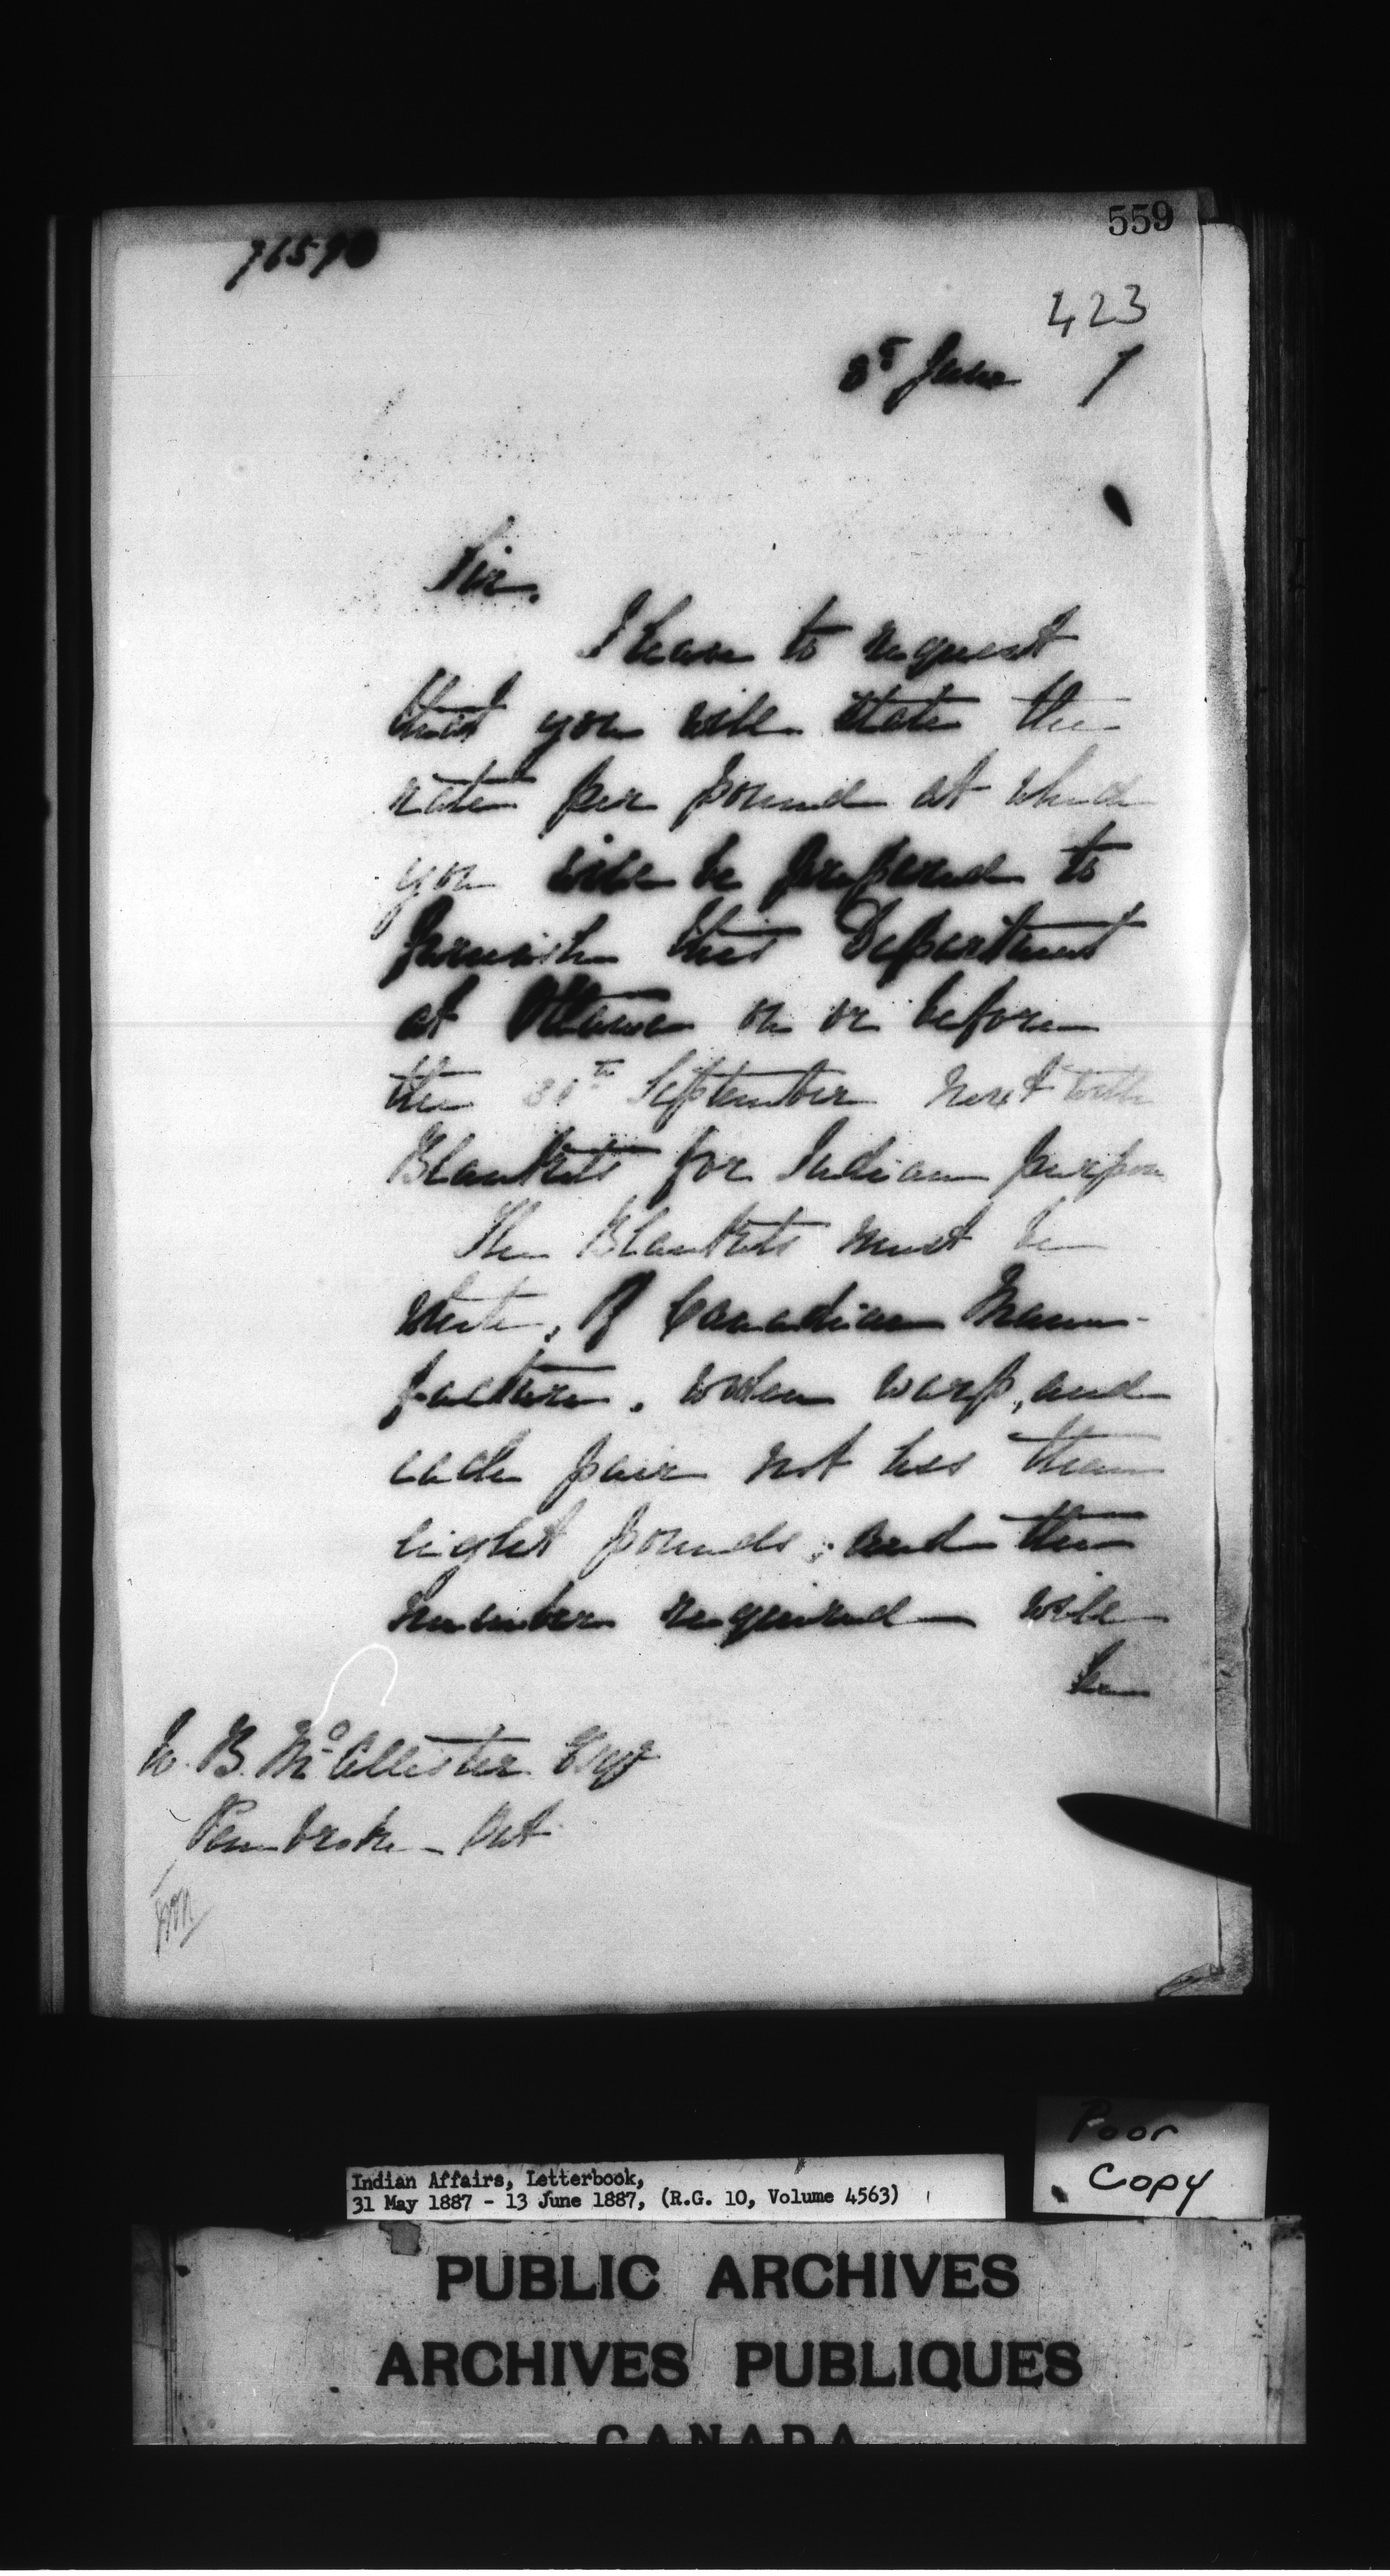 559
423
8th June 7
Sir.
I have to request
that you will state the
rate per pound at which
you will be prepared to
furnish this Department
at Ottawa on or before
the 30th September next with
Blankets for Indian purposes
The Blankets must be
white, of Canadian Manu-
facture, woolen warp, and
each pair not less than
eight pounds; and the
number required will
be
W. B. McAllister Esqr
Pembroke - Ont
Poor
Copy
Indian Affairs, Letterbook,
31 May 1887 - 13 June 1887, (R.G. 10, Volume 4563)
PUBLIC ARCHIVES
ARCHIVES PUBLIQUES
CANADA